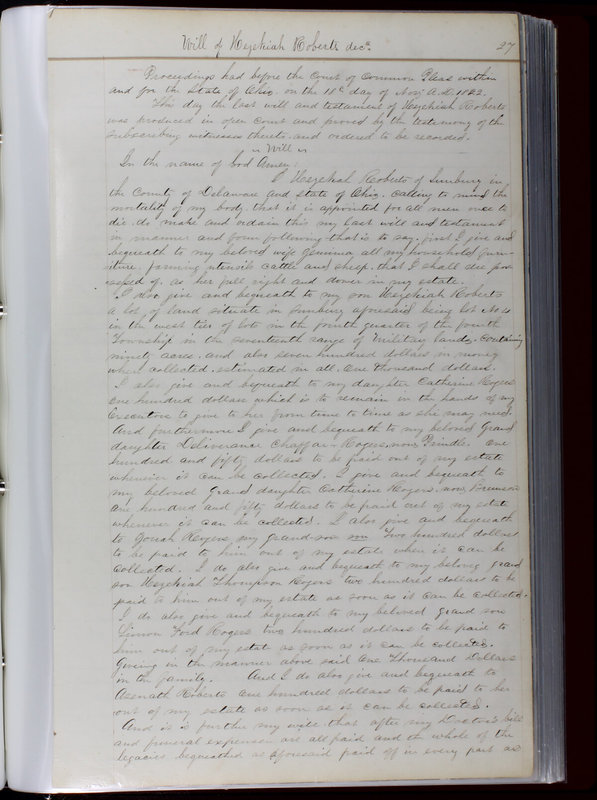 Will of Hezekiah Roberts decd. 27
Proceedings had before the Court of Common Pleas within
and for the State of Ohio. on the 18th day of Nov. A.D. 1822.
This day the last will and testament of Hezekiah Roberts
was produced in open Court and proved by the testimony of the
subscribing witnesses thereto. and ordered to be recorded.
"Will"
In the name of God Amen:
I Hezekiah Roberts of Sunbury in
the County of Delaware and state of Ohio. calling to mind the
mortality of my body, that it is appointed for all men once to
die. do make and ordain this my last will and testament
in manner and form following that is to say. first I give and
bequeath to my beloved wife Jemima all my household furni-
ture. farming utensils cattle and sheep. that I shall die pos-
sessed of. as her full right and dower in my estate.
I also give and bequeath to my son Hezekiah Roberts
a lot of land situate in Sunbury aforesaid being lot No 10
in the west tier of lots in the fourth quarter of the fourth
Township in the seventeenth range of Military lands. Containing
ninety acres. and also seven hundred dollars in money
when collected. estimated in all. One thousand dollars.
I also give and bequeath to my daughter Catherine Rogers
one hundred dollars which is to remain in the hands of my
Executors to give to her from time to time as she may need.
And furthermore I give and bequeath to my beloved Grand
daughter Deliverance Rogers. now Prindle. one
hundred and fifty dollars to be paid out of my estate
whenever it can be collected. I give and bequeath to
my beloved Grand daughter Catherine Rogers. now Brunson
one hundred and fifty dollars to be paid out of my estate
whenever it can be collected. I also give and bequeath
to Josiah Rogers my grand son two hundred dollars
to be paid to him out of my estate when it can be
collected. I do also give and bequeath to my belong grand
son Hezekiah Thompson Rogers two hundred dollars to be
paid to him out of my estate as soon as it can be collected.
I do also give and bequeath to my beloved grand son
Simon Ford Rogers two hundred dollars to be paid to
him out of my estate as soon as it can be collected.
Giving in the manner above said One Thousand Dollars
in the family. And I do also give and bequeath to
Asenath Roberts one hundred dollars to be paid to her
out of my estate as soon as it can be collected.
And it is further my will. that after my Doctor's bill
and funeral expenses are all paid and the whole of the
legacies bequeathed as aforesaid paid off in every part as